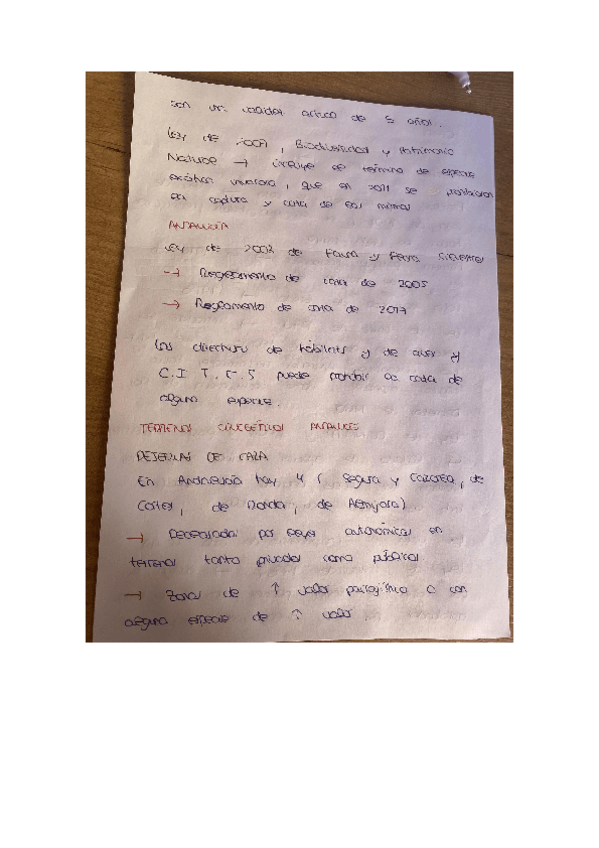 son un validez cinco de 5 años.
Ley de 2007, Biodiversidad y Patrimonio
Natural → incluye el término de especie
exótica invasora, que en 2011 se prohibieron
su captura y caza de las mismas
ANDALUCÍA
Ley de 2003 de Fauna y Flora Silvestres
→ Reglamento de caza de 2005
→ Reglamento de caza de 2017
Las directivas de hábitats y de aves y
C.I.T.E.S puede prohibir la caza de
alguna especie.
TERRENOS CINEGÉTICOS ANDALUCES
RESERVAS DE CAZA
En Andalucía hay 4 ( Segura y Cazorla, de
Cortes, de Ronda, de Almijara)
→ Declaradas por leyes autonómicas en
terrenos tanto privados como públicos
→ Zonas de ↑ valor paisajístico o con
alguna especie de ↑ valor